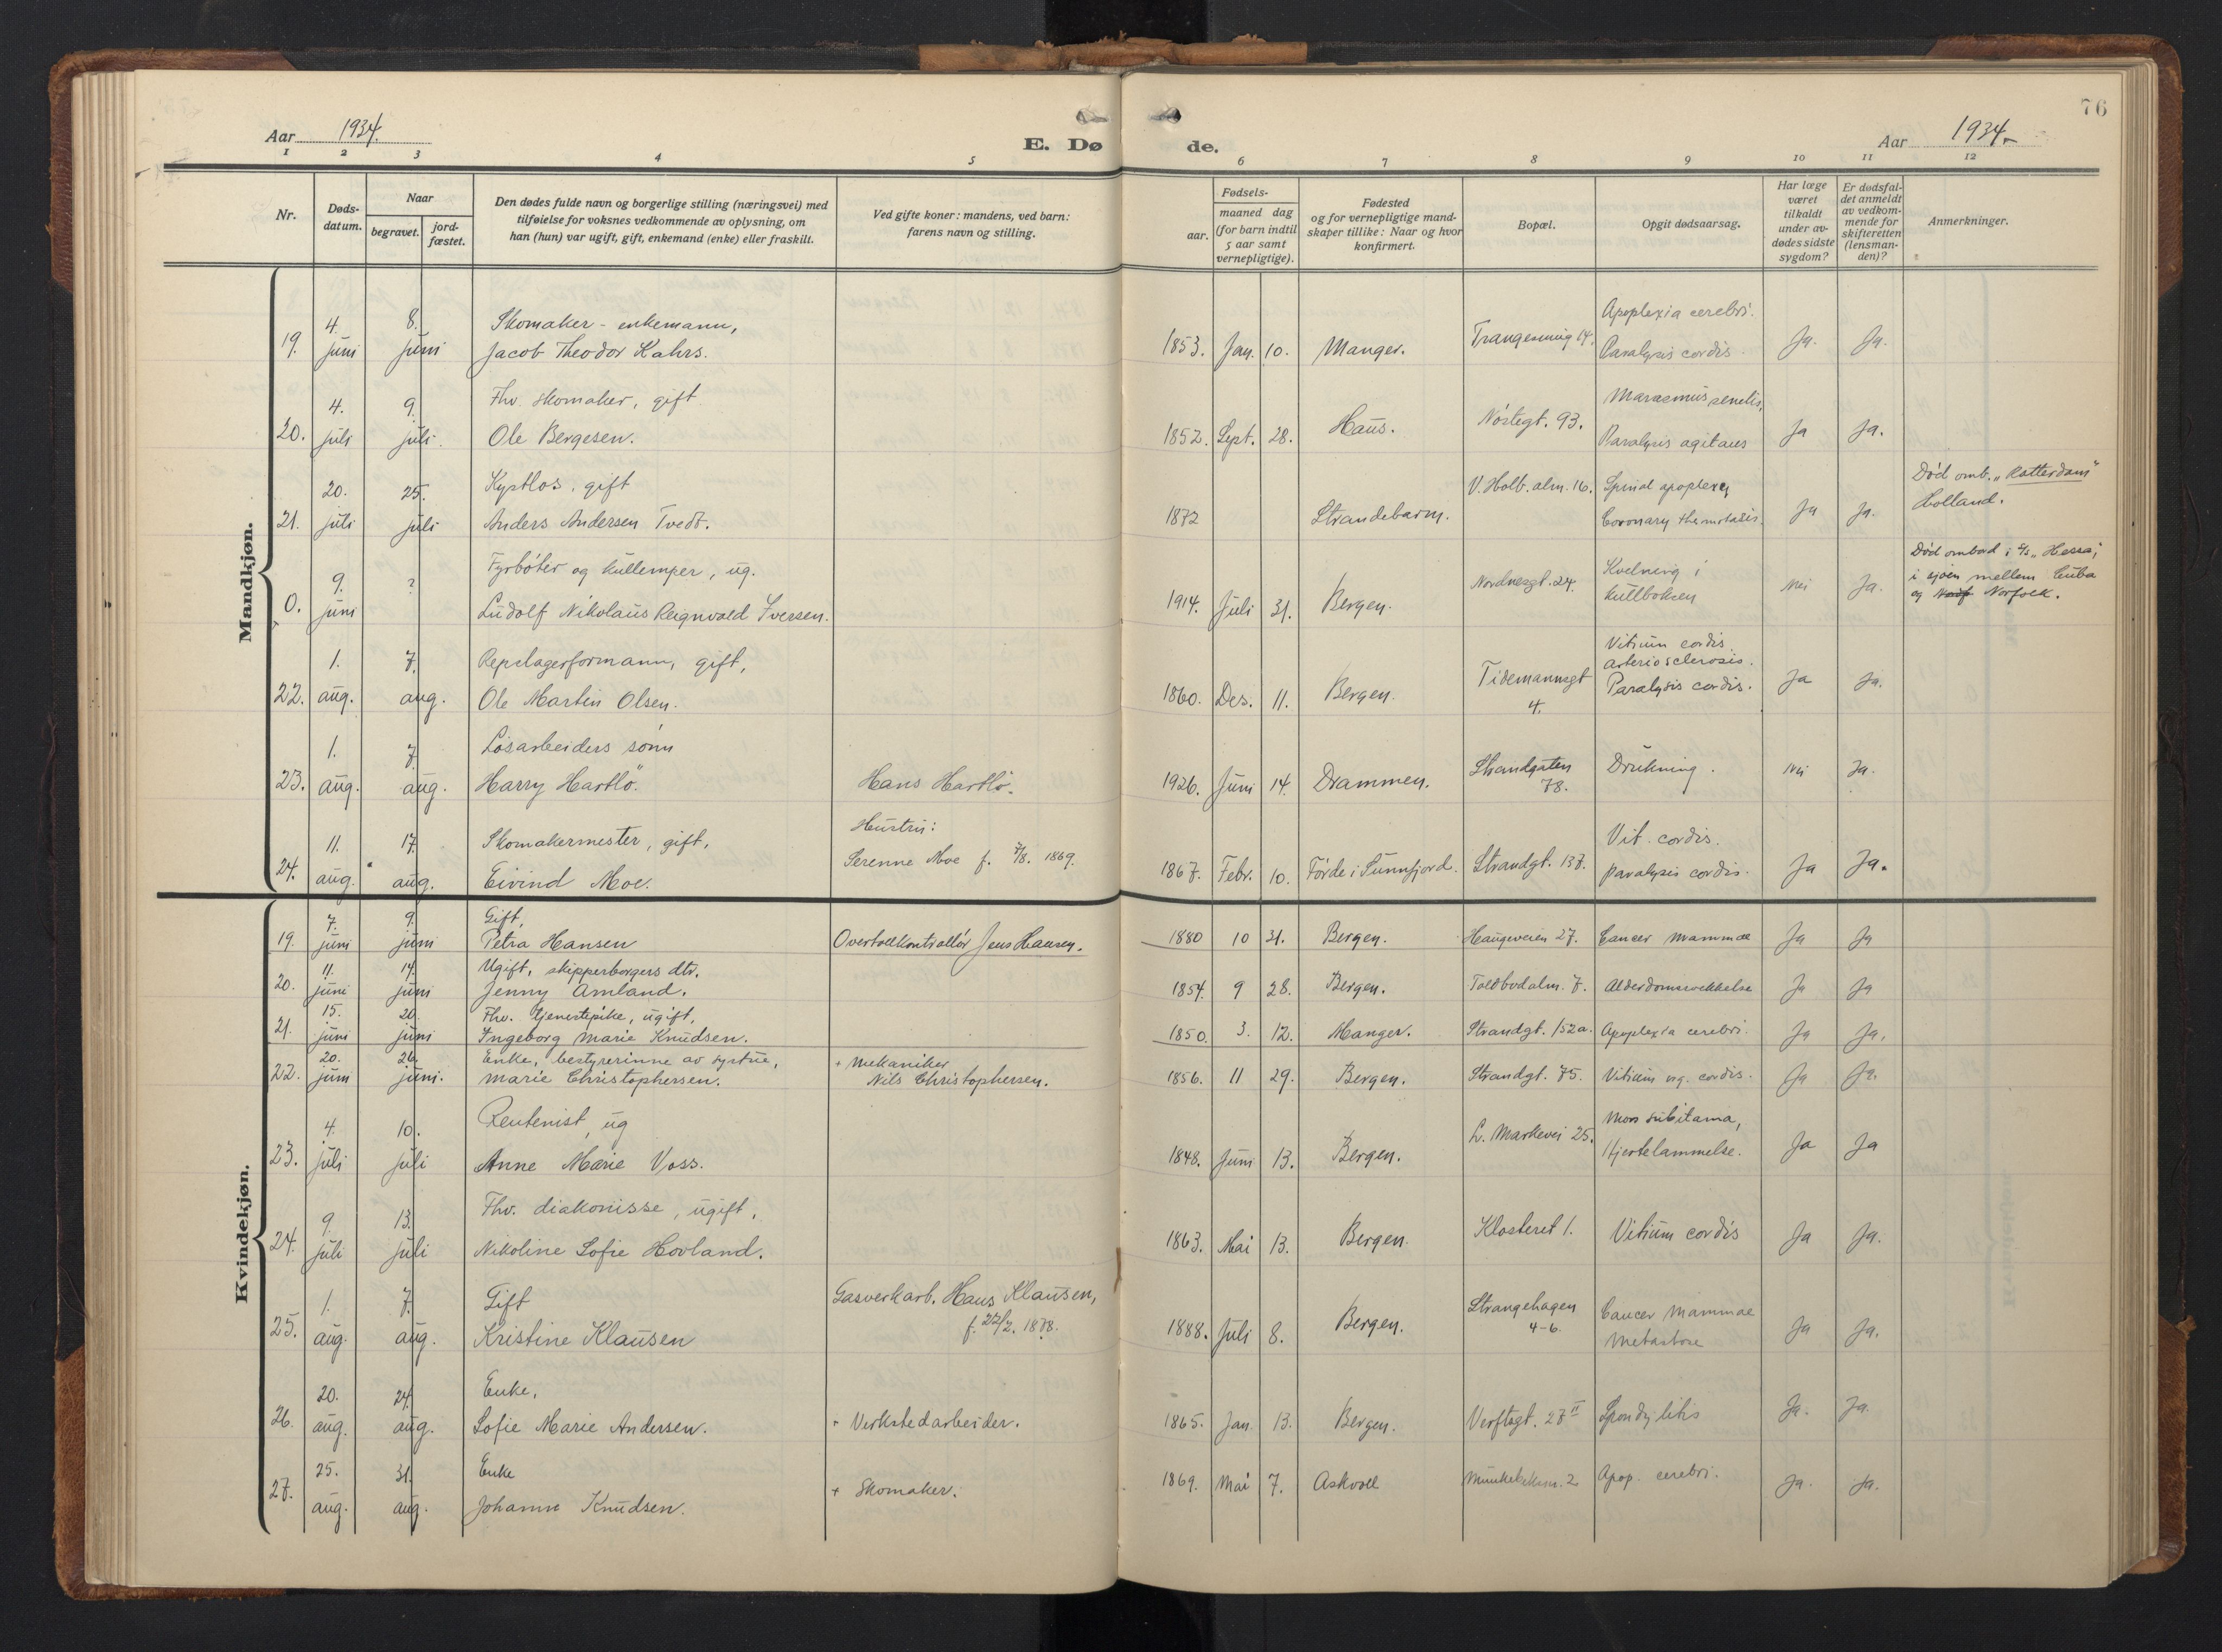 76
Aar 1934.
E. Dø
de.
Aar 1934.
1 2 3 4 5 6 7 8 9 10 11 12
Nr.
Døds-
datum.
Naar
begravet.
jord-
fæstet.
Den dødes fulde navn og borgerlige stilling (næringsvei) med
tilføielse for voksnes vedkommende av oplysning, om
han (hun) var ugift, gift, enkemand (enke) eller fraskilt.
Ved gifte koner: mandens, ved barn:
farens navn og stilling.
Fødsels-
aar.
maaned dag
(for barn indtil
5 aar samt
vernepligtige).
Fødested
og for vernepligtige mand-
skaper tillike: Naar og hvor
konfirmert.
Bopæl.
Opgit dødsaarsag.
Har læge
været
tilkaldt
under av-
dødes sidste
sygdom?
Er dødsfal-
det anmeldt
av vedkom-
mende for
skifteretten
(lensman-
den)?
Anmerkninger.
Mandkjøn.
4. 8. Skomaker - enkemann, Apoplexia cerebri.
19. juni juni Jacob Theodor Kahrs. 1853. Jan. 10. Manger. Trangesmug 14. Paralysis cordis. Ja. Ja.
4. 9. Fhv. skomaker, gift Marasmus senilis,
20. juli juli. Ole Bergesen. 1852. Sept. 28. Haus. Nöstegt. 93. Paralysis agitans Ja Ja.
20. 25. Kystlos, gift V. Holb. alm. 16. Spinal apoplexy Död omb. "Rotterdam"
21. juli juli Anders Andersen Tvedt. 1872 Strandebarm. Coronary Ja Ja. Holland.
9. ? Fyrböter og kullemper, ug. Kvelning i Död ombord i s/s "Hessa",
0. juni Ludolf Nikolaus Reignvald Iversen. 1914. Juli 31. Bergen. Nordnesgt. 24. kullboksen Nei Ja. i sjöen mellem Cuba
og Norf Norfolk.
1. 7. Repslagerformann, gift, Vitium cordis.
arteriosclerosis.
22. aug. aug. Ole Martin Olsen. 1860. Des. 11. Bergen. Tidemannsgt 4. Paralysis cordis. Ja Ja.
1. 7. Lösarbeiders sönn
23. aug. aug. Harry Hartlö. Hans Hartlö. 1926. Juni 14. Drammen. Strandgaten 78. Drukning. Nei Ja.
11. 17. Skomakermester, gift, Hustru: Vit. cordis.
24. aug. aug. Eivind Moe. Serenne Moe f. 7/8. 1869. 1867. Febr. 10. Förde i Sunnfjord. Strandgt. 137. paralysis cordis. Ja Ja.
Kvindekjøn.
7. 9. Gift,
19. juni juni Petra Hansen Overtollkontrollör Jens Hansen. 1880 10 31. Bergen. Haugeveien 27. Cancer mammae Ja Ja
11. 14. Ugift, skipperborgers dtr.
20. juni juni Jenny Amland. 1854. 9 28. Bergen. Tollbodalm. 7. Alderdomssvekkelse Ja Ja
15. 20. Fhv. tjenestepike, ugift,
21. juni juni Ingeborg Marie Knudsen. 1850. 3. 12. Manger. Strandgt. 152a. Apoplexia cerebri. Ja Ja.
20. 26. Enke, bestyrerinne av systue, + Mekaniker
22. juni juni. Marie Christophersen. Nils Christophersen. 1856. 11 29. Bergen. Strandgt. 75. Vitium org. cordis. Ja Ja.
4. 10. Rentenist, ug Mors subitama,
23. juli juli Anne Marie Voss. 1848. Juni 13. Bergen. L. Markevei 25. Hjertelammelse. Ja Ja
9. 13. Fhv. diakonisse, ugift,
24. juli juli Nikoline Sofie Hovland. 1863. Mai 13. Bergen. Klosteret 1. Vitium cordis Ja Ja.
1. 7. Gift Gasverkarb. Hans Klausen, Strangehagen Cancer mammae
25. aug. aug. Kristine Klausen f. 22/2. 1878. 1888. Juli 8. Bergen. 4-6. Metastase Ja Ja.
20. 24. Enke,
26. aug. aug. Sofie Marie Andersen. + Verkstedarbeider. 1865. Jan. 13. Bergen. Verftsgt. 27 II Spondylitis Ja. Ja.
25. 31. Enke
27. aug. aug. Johanne Knudsen. + Skomaker. 1869. Mai 7. Askvoll 2 Apop. cerebri. Ja. Ja.